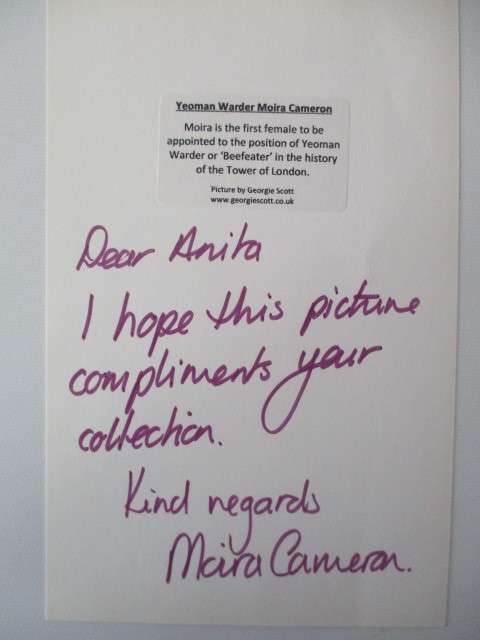 Yeoman Warder Moira Cameron
Moira is the first female to be
appointed to the position of Yeoman
Warder or 'Beefeater' in the history
of the Tower of London.
Picture by Georgie Scott
www.georgiescott.co.uk
Dear Anita
I hope this picture
compliments your
collection.
Kind regards
Moira Cameron.